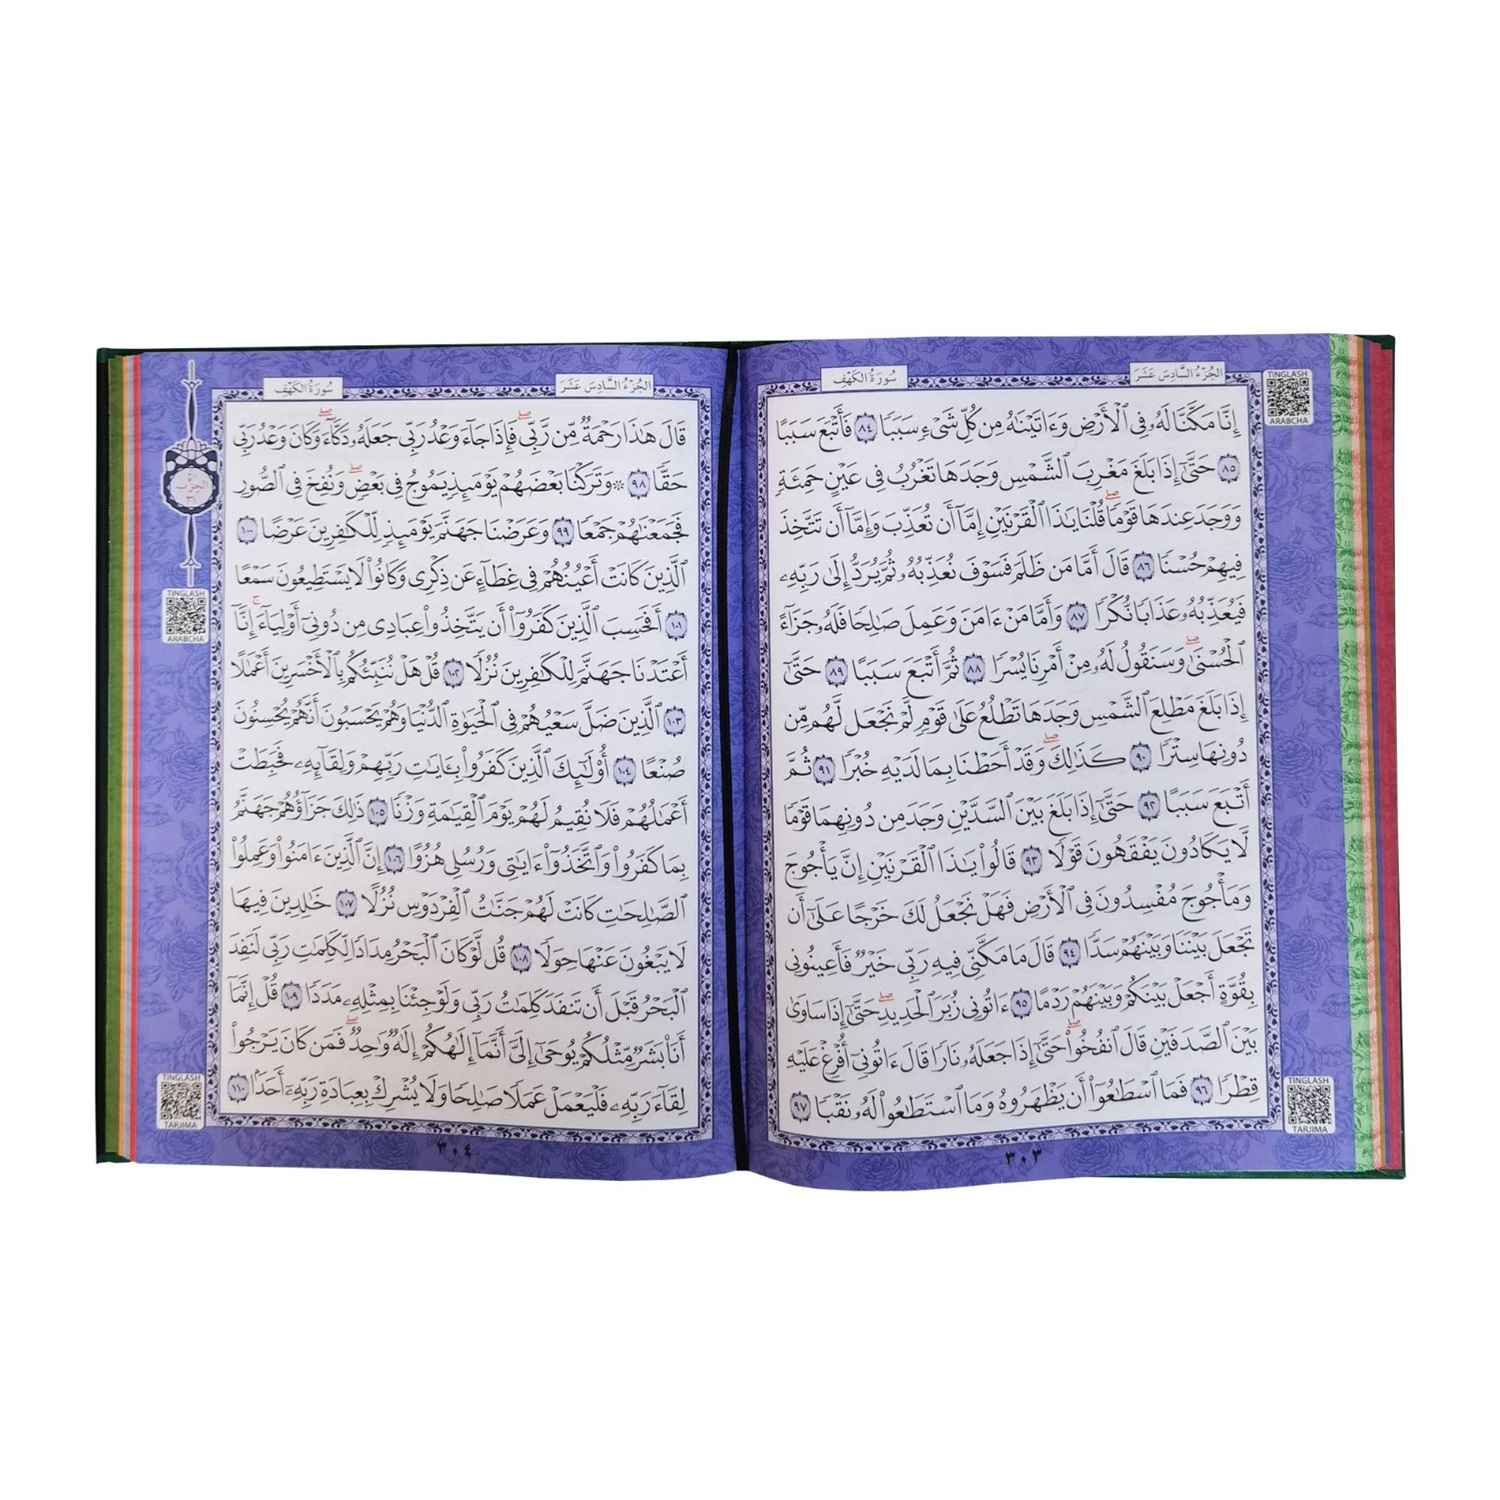 الجُزْءُ السَّادِسَ عَشَرَ
سُورَةُ الكَهْفِ
إِنَّا مَكَّنَّا لَهُۥ فِي ٱلْأَرْضِ وَءَاتَيْنَٰهُ مِن كُلِّ شَىْءٍ سَبَبًا ٨٤ فَأَتْبَعَ سَبَبًا
٨٥ حَتَّىٰٓ إِذَا بَلَغَ مَغْرِبَ ٱلشَّمْسِ وَجَدَهَا تَغْرُبُ فِي عَيْنٍ حَمِئَةٍ
وَوَجَدَ عِندَهَا قَوْمًاۖ قُلْنَا يَٰذَا ٱلْقَرْنَيْنِ إِمَّآ أَن تُعَذِّبَ وَإِمَّآ أَن تَتَّخِذَ
فِيهِمْ حُسْنًا ٨٦ قَالَ أَمَّا مَن ظَلَمَ فَسَوْفَ نُعَذِّبُهُۥ ثُمَّ يُرَدُّ إِلَىٰ رَبِّهِۦ
فَيُعَذِّبُهُۥ عَذَابًا نُّكْرًا ٨٧ وَأَمَّا مَنْ ءَامَنَ وَعَمِلَ صَٰلِحًا فَلَهُۥ جَزَآءً
ٱلْحُسْنَىٰۖ وَسَنَقُولُ لَهُۥ مِنْ أَمْرِنَا يُسْرًا ٨٨ ثُمَّ أَتْبَعَ سَبَبًا ٨٩ حَتَّىٰٓ
إِذَا بَلَغَ مَطْلِعَ ٱلشَّمْسِ وَجَدَهَا تَطْلُعُ عَلَىٰ قَوْمٍ لَّمْ نَجْعَل لَّهُم مِّن
دُونِهَا سِتْرًا ٩٠ كَذَٰلِكَۖ وَقَدْ أَحَطْنَا بِمَا لَدَيْهِ خُبْرًا ٩١ ثُمَّ
أَتْبَعَ سَبَبًا ٩٢ حَتَّىٰٓ إِذَا بَلَغَ بَيْنَ ٱلسَّدَّيْنِ وَجَدَ مِن دُونِهِمَا قَوْمًا
لَّا يَكَادُونَ يَفْقَهُونَ قَوْلًا ٩٣ قَالُوا۟ يَٰذَا ٱلْقَرْنَيْنِ إِنَّ يَأْجُوجَ
وَمَأْجُوجَ مُفْسِدُونَ فِي ٱلْأَرْضِ فَهَلْ نَجْعَلُ لَكَ خَرْجًا عَلَىٰٓ أَن
تَجْعَلَ بَيْنَنَا وَبَيْنَهُمْ سَدًّا ٩٤ قَالَ مَا مَكَّنِّي فِيهِ رَبِّي خَيْرٌ فَأَعِينُونِي
بِقُوَّةٍ أَجْعَلْ بَيْنَكُمْ وَبَيْنَهُمْ رَدْمًا ٩٥ ءَاتُونِي زُبَرَ ٱلْحَدِيدِۖ حَتَّىٰٓ إِذَا سَاوَىٰ
بَيْنَ ٱلصَّدَفَيْنِ قَالَ ٱنفُخُوا۟ۖ حَتَّىٰٓ إِذَا جَعَلَهُۥ نَارًا قَالَ ءَاتُونِيٓ أُفْرِغْ عَلَيْهِ
قِطْرًا ٩٦ فَمَا ٱسْطَٰعُوٓا۟ أَن يَظْهَرُوهُ وَمَا ٱسْتَطَٰعُوا۟ لَهُۥ نَقْبًا ٩٧
٣٠٣
TINGLASH
ARABCHA
TINGLASH
TARJIMA
الجُزْءُ السَّادِسَ عَشَرَ
سُورَةُ الكَهْفِ
قَالَ هَٰذَا رَحْمَةٌ مِّن رَّبِّيۖ فَإِذَا جَآءَ وَعْدُ رَبِّي جَعَلَهُۥ دَكَّآءَۖ وَكَانَ وَعْدُ رَبِّي
حَقًّا ٩٨ ۞ وَتَرَكْنَا بَعْضَهُمْ يَوْمَئِذٍ يَمُوجُ فِي بَعْضٍۖ وَنُفِخَ فِي ٱلصُّورِ
فَجَمَعْنَٰهُمْ جَمْعًا ٩٩ وَعَرَضْنَا جَهَنَّمَ يَوْمَئِذٍ لِّلْكَٰفِرِينَ عَرْضًا ١٠٠
ٱلَّذِينَ كَانَتْ أَعْيُنُهُمْ فِي غِطَآءٍ عَن ذِكْرِي وَكَانُوا۟ لَا يَسْتَطِيعُونَ سَمْعًا
١٠١ أَفَحَسِبَ ٱلَّذِينَ كَفَرُوٓا۟ أَن يَتَّخِذُوا۟ عِبَادِي مِن دُونِيٓ أَوْلِيَآءَۚ إِنَّآ
أَعْتَدْنَا جَهَنَّمَ لِلْكَٰفِرِينَ نُزُلًا ١٠٢ قُلْ هَلْ نُنَبِّئُكُم بِٱلْأَخْسَرِينَ أَعْمَٰلًا
١٠٣ ٱلَّذِينَ ضَلَّ سَعْيُهُمْ فِي ٱلْحَيَوٰةِ ٱلدُّنْيَا وَهُمْ يَحْسَبُونَ أَنَّهُمْ يُحْسِنُونَ
صُنْعًا ١٠٤ أُو۟لَٰٓئِكَ ٱلَّذِينَ كَفَرُوا۟ بِـَٔايَٰتِ رَبِّهِمْ وَلِقَآئِهِۦ فَحَبِطَتْ
أَعْمَٰلُهُمْ فَلَا نُقِيمُ لَهُمْ يَوْمَ ٱلْقِيَٰمَةِ وَزْنًا ١٠٥ ذَٰلِكَ جَزَآؤُهُمْ جَهَنَّمُ
بِمَا كَفَرُوا۟ وَٱتَّخَذُوٓا۟ ءَايَٰتِي وَرُسُلِي هُزُوًا ١٠٦ إِنَّ ٱلَّذِينَ ءَامَنُوا۟ وَعَمِلُوا۟
ٱلصَّٰلِحَٰتِ كَانَتْ لَهُمْ جَنَّٰتُ ٱلْفِرْدَوْسِ نُزُلًا ١٠٧ خَٰلِدِينَ فِيهَا
لَا يَبْغُونَ عَنْهَا حِوَلًا ١٠٨ قُل لَّوْ كَانَ ٱلْبَحْرُ مِدَادًا لِّكَلِمَٰتِ رَبِّي لَنَفِدَ
ٱلْبَحْرُ قَبْلَ أَن تَنفَدَ كَلِمَٰتُ رَبِّي وَلَوْ جِئْنَا بِمِثْلِهِۦ مَدَدًا ١٠٩ قُلْ إِنَّمَآ
أَنَا۠ بَشَرٌ مِّثْلُكُمْ يُوحَىٰٓ إِلَيَّ أَنَّمَآ إِلَٰهُكُمْ إِلَٰهٌ وَٰحِدٌۖ فَمَن كَانَ يَرْجُوا۟
لِقَآءَ رَبِّهِۦ فَلْيَعْمَلْ عَمَلًا صَٰلِحًا وَلَا يُشْرِكْ بِعِبَادَةِ رَبِّهِۦٓ أَحَدًۢا ١١٠
٣٠٤
الحزب
٣١
TINGLASH
ARABCHA
TINGLASH
TARJIMA